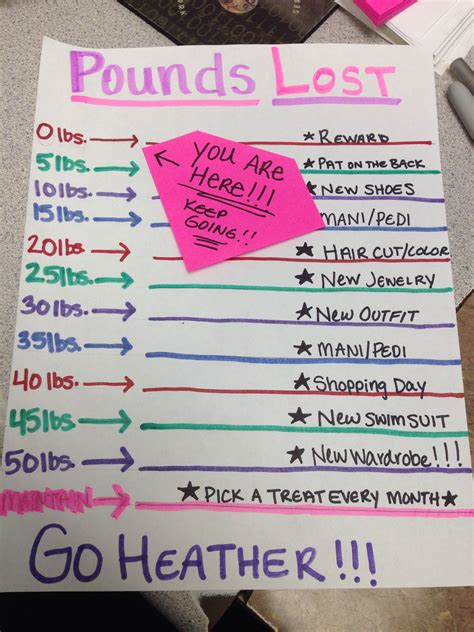 Pounds Lost
0lbs. → ★ Reward
5lbs. → ★ Pat on the Back
10lbs. → New Shoes
15lbs. → Mani/Pedi
20lbs. → ★ Hair Cut/Color
25lbs. → ★ New Jewelry
30lbs. → ★ New Outfit
35lbs. → ★ Mani/Pedi
40lbs. → ★ Shopping Day
45lbs. → ★ New Swimsuit
50lbs. → ★ New Wardrobe!!!
Maintain → ★ Pick a Treat Every Month ★
Go Heather!!!
← You Are
Here!!!
Keep
Going!!